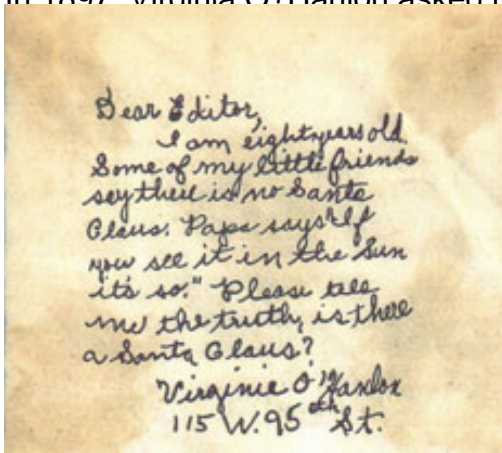 In 1897, Virginia O'Hanlon asked
Dear Editor,
I am eight years old.
Some of my little friends
say there is no Santa
Claus. Papa says "If
you see it in the Sun
it's so." Please tell
me the truth, is there
a Santa Claus?
Virginia O'Hanlon
115 W. 95th St.